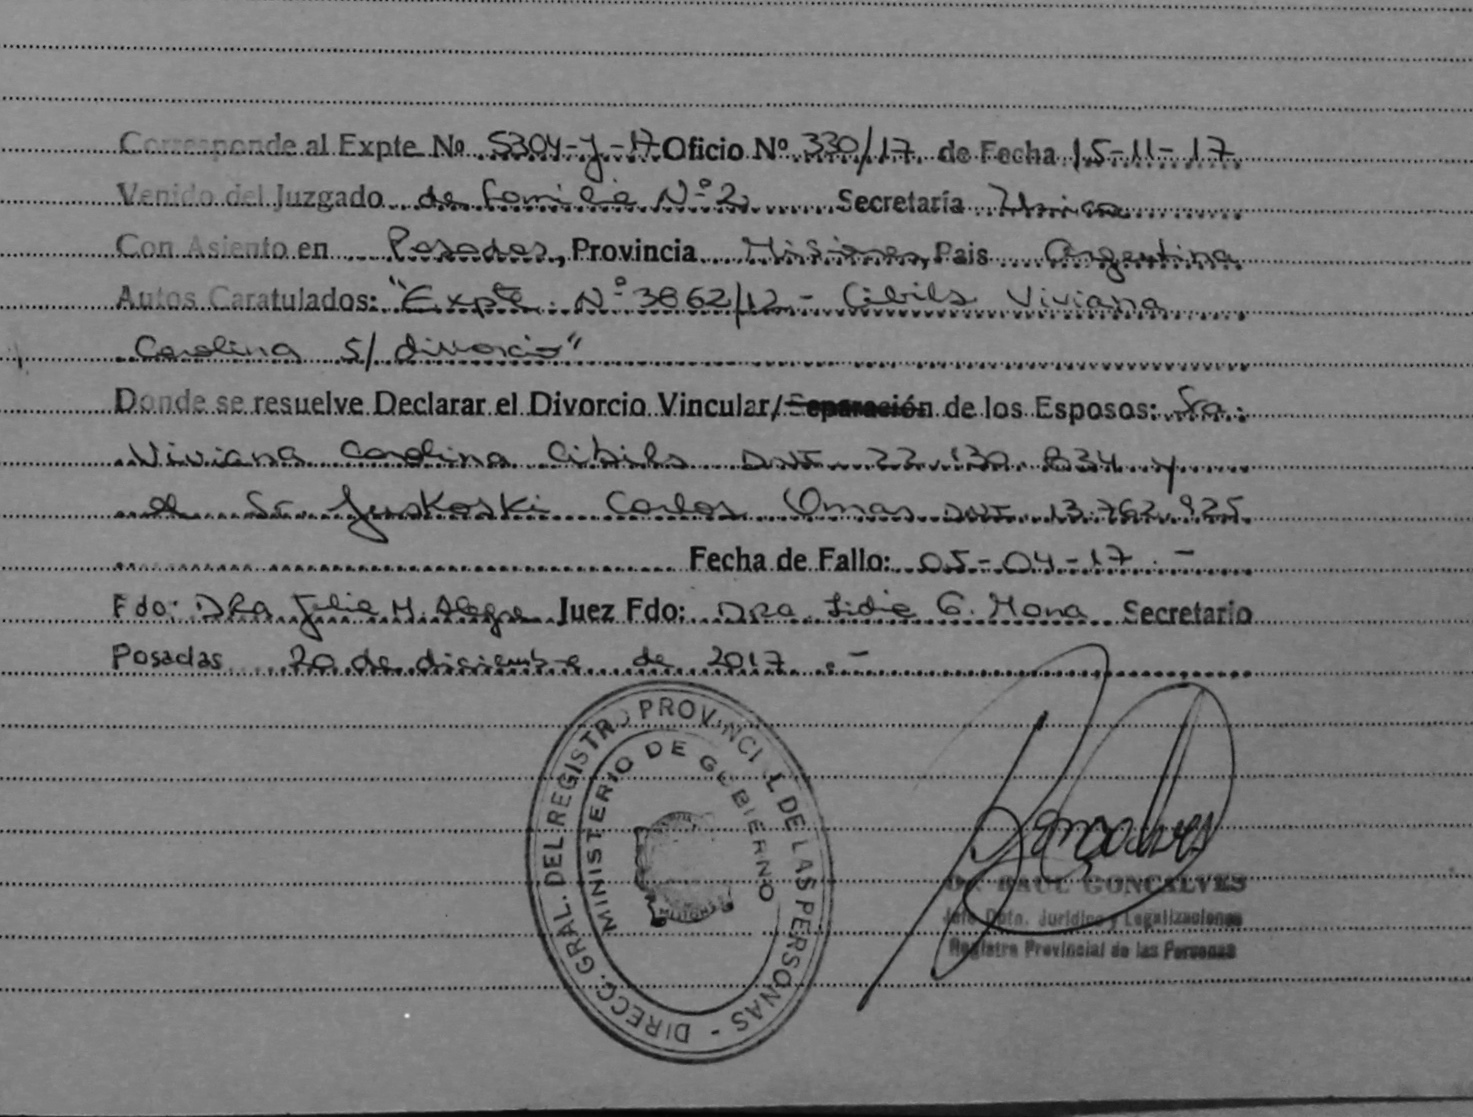 Corresponde al Expte No 5304-y-17 Oficio Nº 330/17 de Fecha 15-11-17
Venido del Juzgado de Familia Nº 2 Secretaría Unica
Con Asiento en Posadas, Provincia Misiones, Pais Argentina
Autos Caratulados: "Expte. Nº 3862/12 - Cibils Viviana
Carolina S/ divorcio"
Donde se resuelve Declarar el Divorcio Vincular/Separación de los Esposos: Sra.
Viviana Carolina Cibils DNI 22.130.834 y
el Sr. Juskoski Carlos Omar DNI 13.762.925
Fecha de Fallo: 05-04-17 -
Fdo: DRa Julia M. Alegre Juez Fdo: DRa. Lidia G. Secretario
Posadas 20 de diciembre de 2017.-
DIRECC. GRAL. DEL REGISTRO PROVINCIAL DE LAS PERSONAS -
MINISTERIO DE GOBIERNO
MISIONES
Gonçalves
Dr RAUL GONCALVES
Jefe Dpto. Jurídico y Legalizaciones
Registro Provincial de las Personas